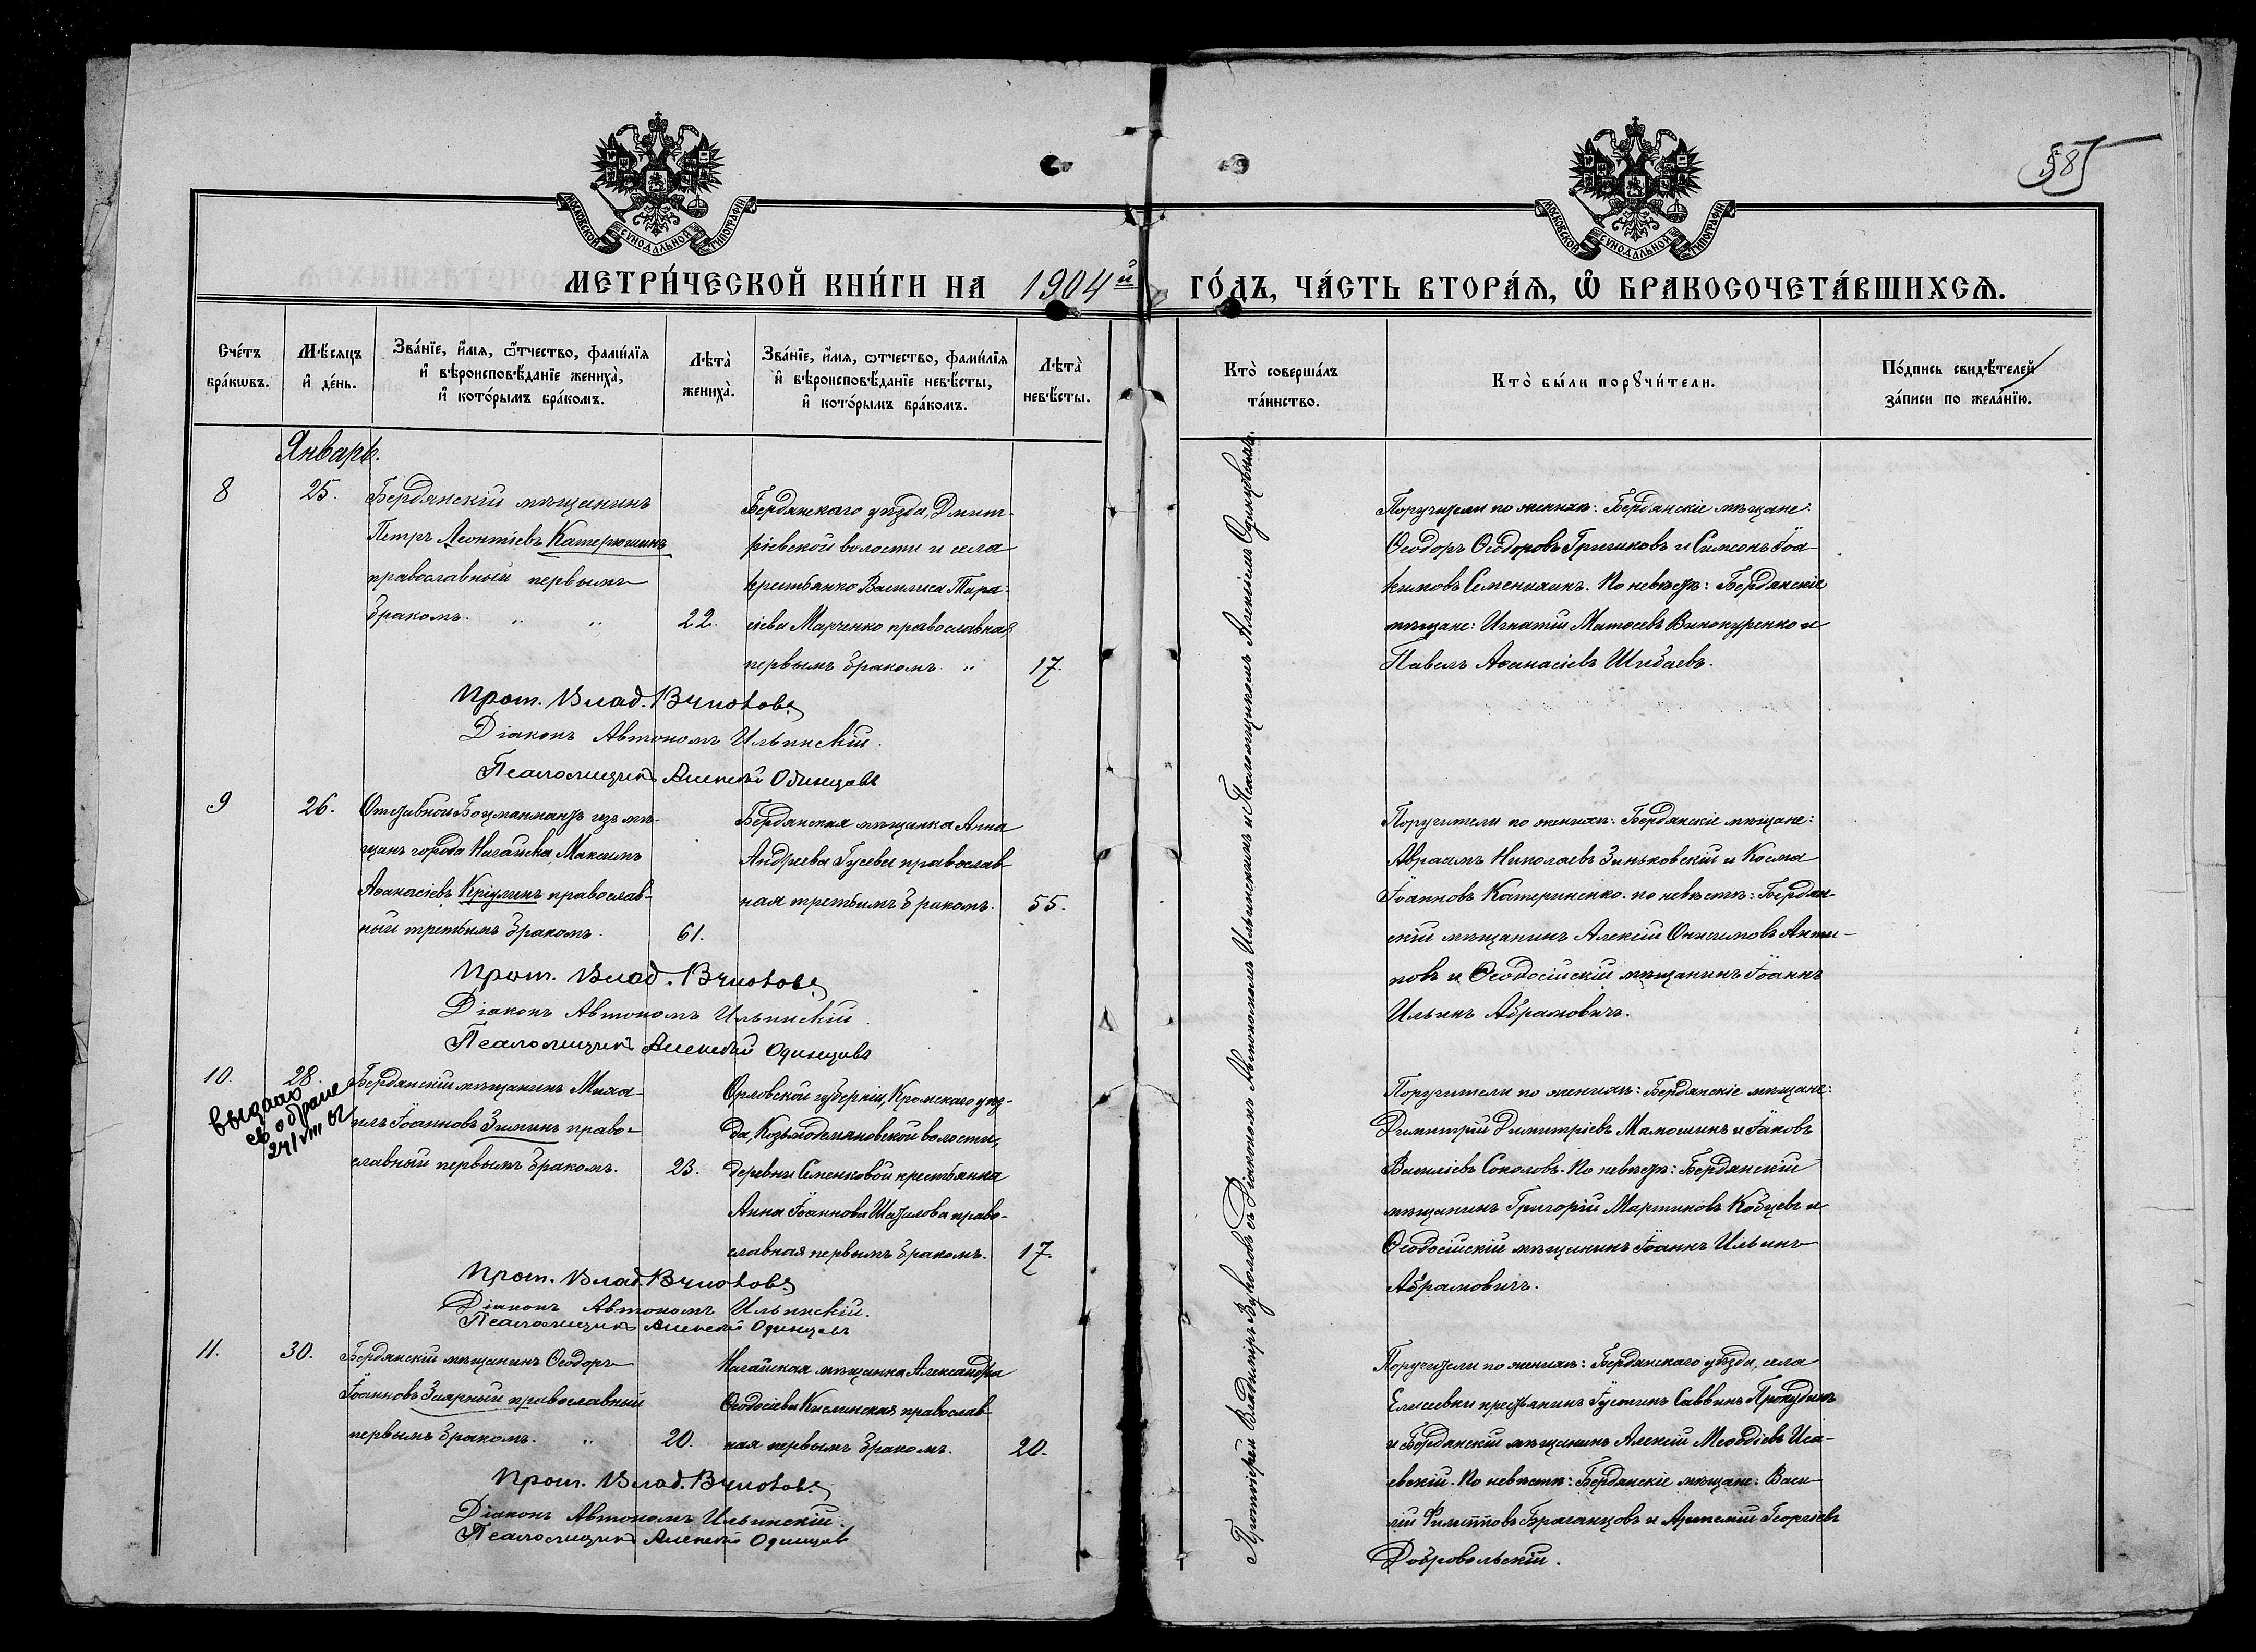 585
МОСКОВСКОЙ СѴНОДАЛЬНОЙ ТИПОГРАФІИ
МОСКОВСКОЙ СѴНОДАЛЬНОЙ ТИПОГРАФІИ
МЕТРИ́ЧЕСКОЙ КНИ́ГИ НА 1904й ГО́ДЪ, ЧА́СТЬ ВТОРА́Я, Ѡ҆ БРАКОСОЧЕТА́ВШИХСЯ.
Сче́тъ
бра́кωвъ.
Мѣ́сяцъ
и҆ де́нь.
Зва́нїе, и҆́мя, ѻ҆́тчество, фами́лїя
и҆ вѣроисповѣ́данїе жениха̀,
и҆ кото́рымъ бра́комъ.
Лѣта̀
жениха̀.
Зва́нїе, и҆́мя, ѻтчество, фами́лїя
и҆ вѣроисповѣ́данїе невѣ́сты,
и҆ кото́рымъ бра́комъ.
Лѣта̀
невѣ́сты.
Кто̀ соверша́лъ
та́инство.
Кто̀ бы́ли порꙋчи́тели.
По́дпись свидѣ́телей
за́писи по жела́нїю.
Январь.
8
25.
Бердянскій мѣщанинъ
Петръ Леонтіевъ Катерюшинъ
православный первымъ
бракомъ. " "
22.
Бердянскаго уѣзда, Дмит-
ріевской волости и села
крестьянка Василиса Тара-
сіева Марченко православная
первымъ бракомъ. "
17.
Поручители по женихѣ: Бердянскіе мѣщане:
Ѳеодоръ Ѳеодоровъ Гричиковъ и Симеонъ Іоа-
кимовъ Семенихинъ. По невѣстѣ: Бердянскіе
мѣщане: Игнатій Матѳеевъ Винокуренко и
Павелъ Аѳанасіевъ Шибаевъ.
Прот. Влад. Вуколовъ
Діаконъ Автономъ Ильинскій.
Псаломщикъ Алексѣй Одинцовъ
9
26.
Отставной Боцманматъ изъ мѣ-
щанъ города Ногайска Максимъ
Аѳанасіевъ Кріулинъ православ-
ный третьимъ бракомъ.
61.
Бердянская мѣщанка Анна
Андреева Гусева православ-
ная третьимъ бракомъ.
55.
Поручители по женихѣ: Бердянскіе мѣщане:
Авраамъ Николаевъ Зиньковскій и Косма
Іоанновъ Катериненко. по невѣстѣ: Бердян-
скій мѣщанинъ Алексій Онисимовъ Анти-
повъ и Ѳеодосійскій мѣщанинъ Іоаннъ
Ильинъ Абрамовичъ.
Прот. Влад. Вуколовъ
Діаконъ Автономъ Ильинскій.
Псаломщикъ Алексѣй Одинцовъ
10.
28.
выдано
24/VIII
Бердянскій мѣщанинъ Миха-
илъ Іоанновъ Зиминъ право-
славный первымъ бракомъ.
23.
Орловской губерніи, Кромскаго уѣз-
да, Козьмодемьяновской волости,
деревни Семенковой крестьянка
Анна Іоаннова Шатилова право-
славная первымъ бракомъ.
17.
Поручители по женихѣ: Бердянскіе мѣщане:
Димитрій Димитріевъ Мамошинъ и Іаковъ
Василіевъ Соколовъ. По невѣстѣ: Бердянскій
мѣщанинъ Григорій Мартиновъ Кобцевъ и
Ѳеодосійскій мѣщанинъ Іоаннъ Ильинъ
Абрамовичъ.
Прот. Влад. Вуколовъ
Діаконъ Автономъ Ильинскій.
Псаломщикъ Алексѣй Одинцовъ
11.
30.
Бердянскій мѣщанинъ Ѳеодоръ
Іоанновъ Заярный православный
первымъ бракомъ. "
20.
Ногайская мѣщанка Александра
Ѳеодосіева Кислинская православ-
ная первымъ бракомъ.
20.
Поручители по женихѣ: Бердянскаго уѣзда, села
Елисеевки крестьянинъ Іустинъ Саввинъ Прокудинъ
и Бердянскій мѣщанинъ Алексій Меѳодіевъ Иса-
евскій. По невѣстѣ: Бердянскіе мѣщане: Васи-
лій Филипповъ Браганцовъ и Артемій Георгіевъ
Добровольскій.
Прот. Влад. Вуколовъ
Діаконъ Автономъ Ильинскій.
Псаломщикъ Алексѣй Одинцовъ
Протоіерей Владиміръ Вуколовъ съ Діакономъ Автономомъ Ильинскимъ и Псаломщикомъ Алексіемъ Одинцовымъ.